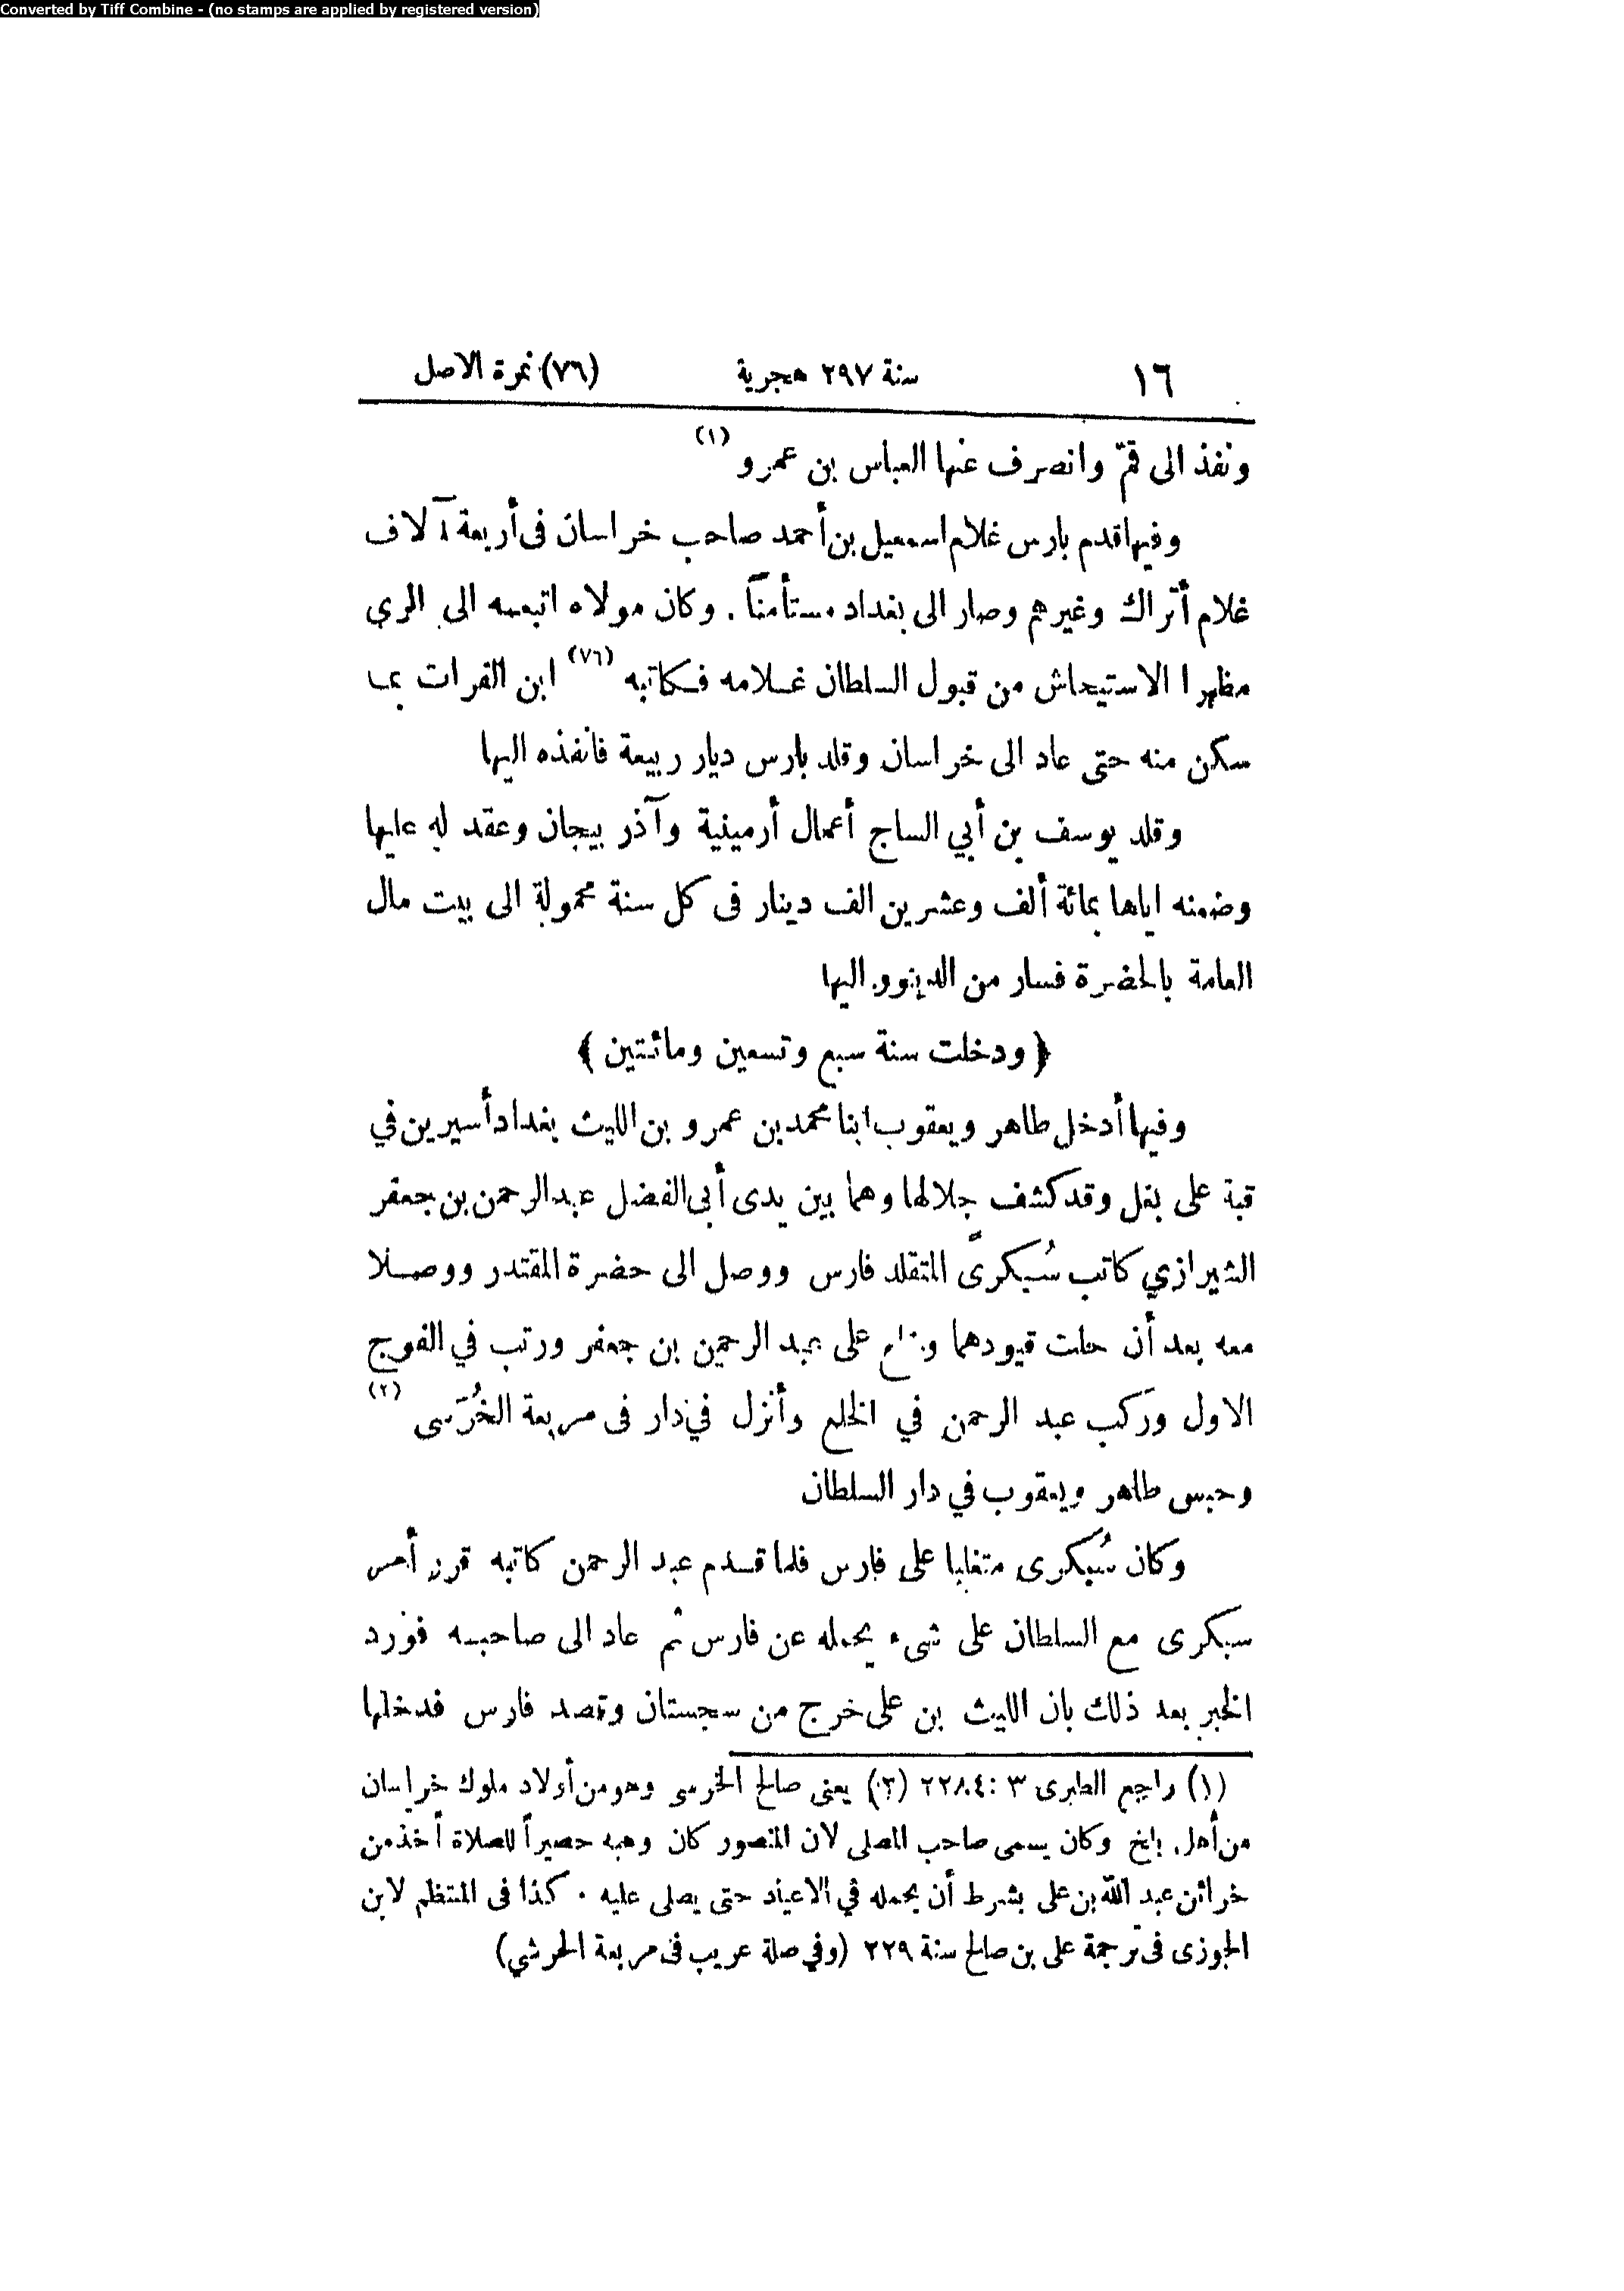 Converted by Tiff Combine - (no stamps are applied by registered version)
١٦ سنة ٢٩٧ هجرية (٧٦) نمرة الاصل
ونفذ الى قمّ وانصرف عنها العباس بن عمرو (١)
وفيها قدم بارس غلام اسمعيل بن أحمد صاحب خراسان فى أربعة آلاف
غلام أتراك وغيرهم وصار الى بغداد مستأمناً . وكان مولاه اتبعه الى الري
مظهرا الاستيحاش من قبول السلطان غلامه فكاتبه (٧٦) ابن الفرات بما
سكن منه حتى عاد الى خراسان وقلد بارس ديار ربيعة فانفذه اليها
وقلد يوسف بن أبي الساج أعمال أرمينية وآذر بيجان وعقد له عليها
وضمنه اياها بمائة ألف وعشرين الف دينار فى كل سنة محمولة الى بيت مال
العامة بالحضرة فسار من الدينور اليها
﴿ ودخلت سنة سبع وتسعين ومائتين ﴾
وفيها أدخل طاهر ويعقوب ابنا محمد بن عمرو بن الليث بغداد أسيرين في
قبة على بغل وقد كشف جلالها وهما بين يدى أبى الفضل عبد الرحمن بن جعفر
الشيرازي كاتب سُبكرىّ المتقلد فارس ووصل الى حضرة المقتدر ووصلا
معه بعد أن حلت قيودهما على عبد الرحمن بن جعفر ورتب في الفوج
الاول وركب عبد الرحمن في الخلع وأنزل في دار فى مربعة الخُرَسى (٢)
وحبس طاهر ويعقوب في دار السلطان
وكان سُبكرى متغلبا على فارس فلما قدم عبد الرحمن كاتبه قرر أمر
سبكرى مع السلطان على شىء يحمله عن فارس ثم عاد الى صاحبه فورد
الخبر بعد ذلك بان الليث بن على خرج من سجستان وقصد فارس فدخلها
(١) راجع الطبرى ٣ : ٢٢٨٤ (٢) يعنى صالح الخرسى وهو من أولاد ملوك خراسان
من أهل بلخ وكان يسمى صاحب المصلى لان المنصور كان وهبه حصيراً للصلاة أخذ من
خزائن عبد الله بن على بشرط أن يحمله في الاعياد حتى يصلى عليه . كذا فى المنتظم لابن
الجوزى فى ترجمة على بن صالح سنة ٢٢٩ (وفي صلة عريب فى مربعة الحرشي)